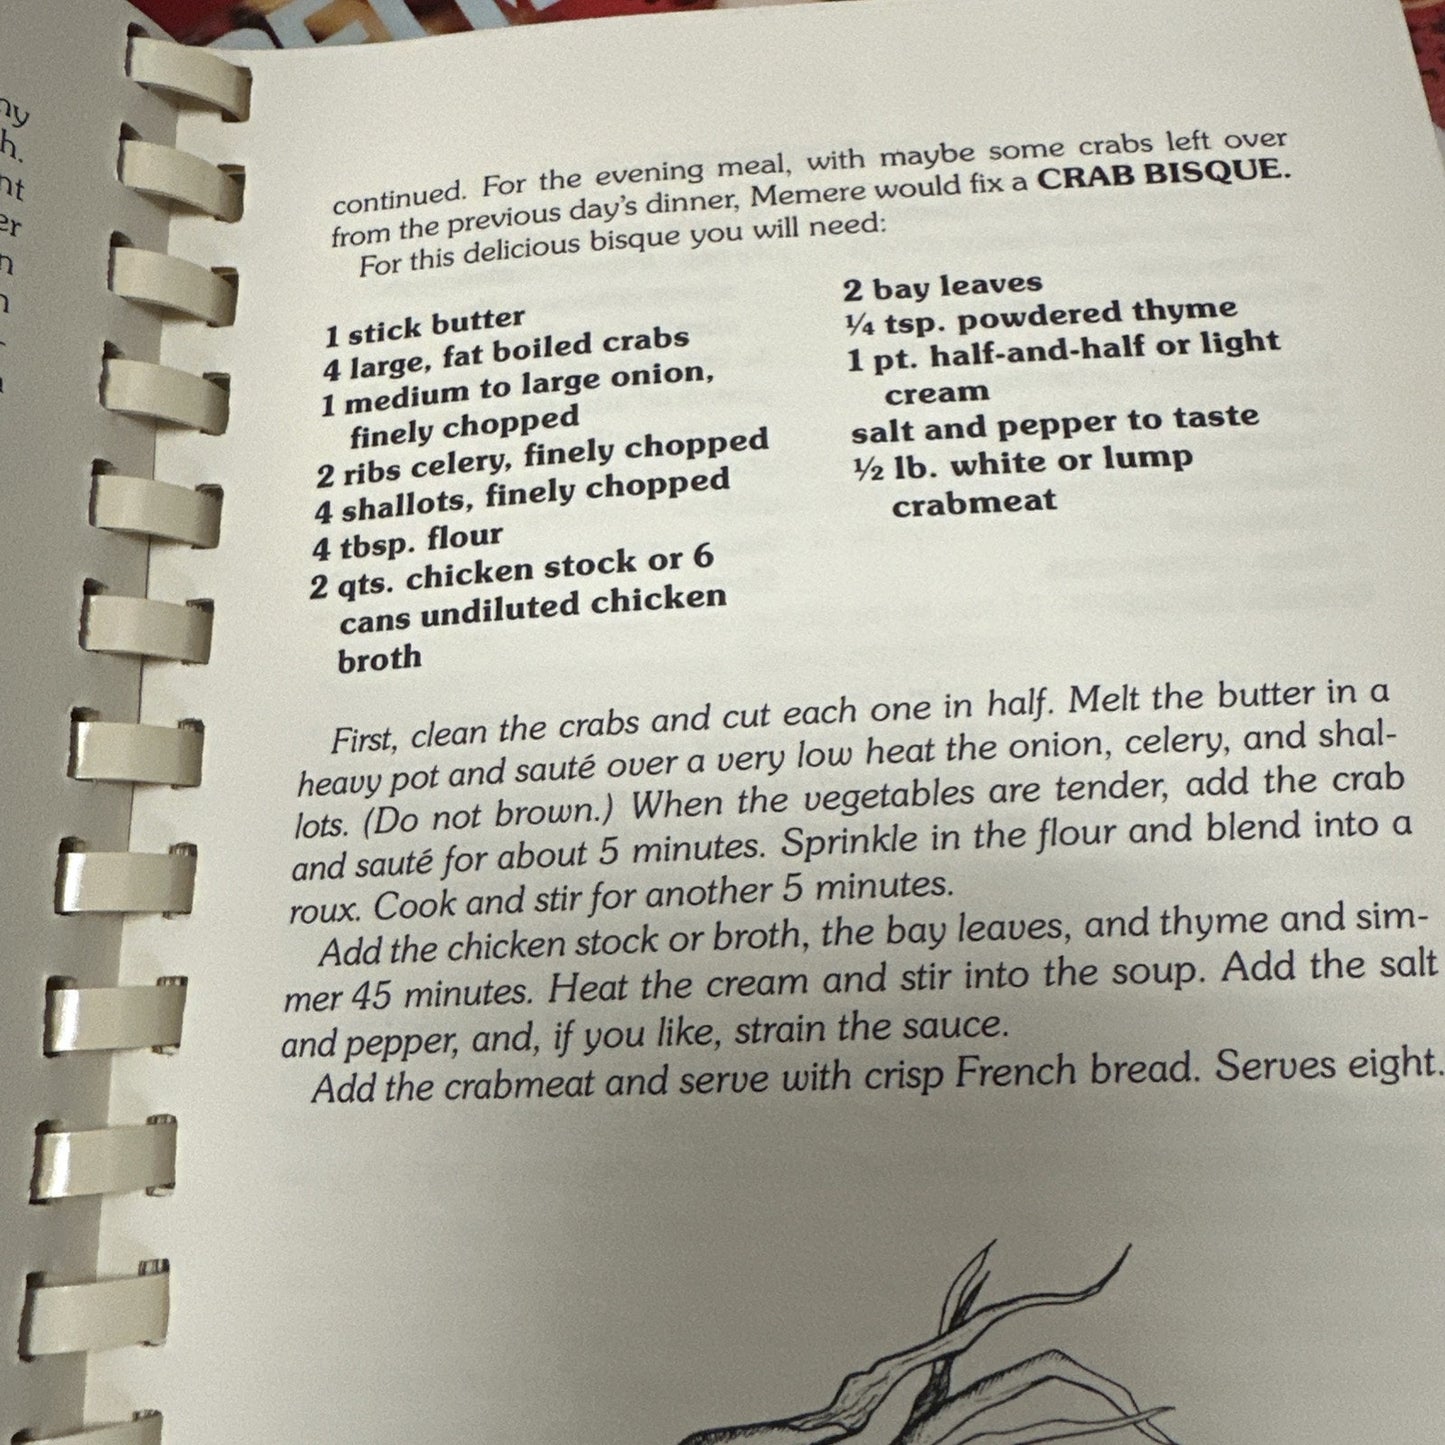 ny
h.
nt
er
n
continued. For the evening meal, with maybe some crabs left over
from the previous day's dinner, Memere would fix a CRAB BISQUE.
For this delicious bisque you will need:
1 stick butter
4 large, fat boiled crabs
1 medium to large onion,
finely chopped
2 ribs celery, finely chopped
4 shallots, finely chopped
4 tbsp. flour
2 qts. chicken stock or 6
cans undiluted chicken
broth
2 bay leaves
¼ tsp. powdered thyme
1 pt. half-and-half or light
cream
salt and pepper to taste
½ lb. white or lump
crabmeat
First, clean the crabs and cut each one in half. Melt the butter in a
heavy pot and sauté over a very low heat the onion, celery, and shal-
lots. (Do not brown.) When the vegetables are tender, add the crab
and sauté for about 5 minutes. Sprinkle in the flour and blend into a
roux. Cook and stir for another 5 minutes.
Add the chicken stock or broth, the bay leaves, and thyme and sim-
mer 45 minutes. Heat the cream and stir into the soup. Add the salt
and pepper, and, if you like, strain the sauce.
Add the crabmeat and serve with crisp French bread. Serves eight.